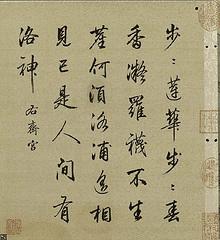 步〻蓮華步〻春
香凝羅襪不生
塵何須洛浦遥相
見已是人間有
洛神
右齋宮